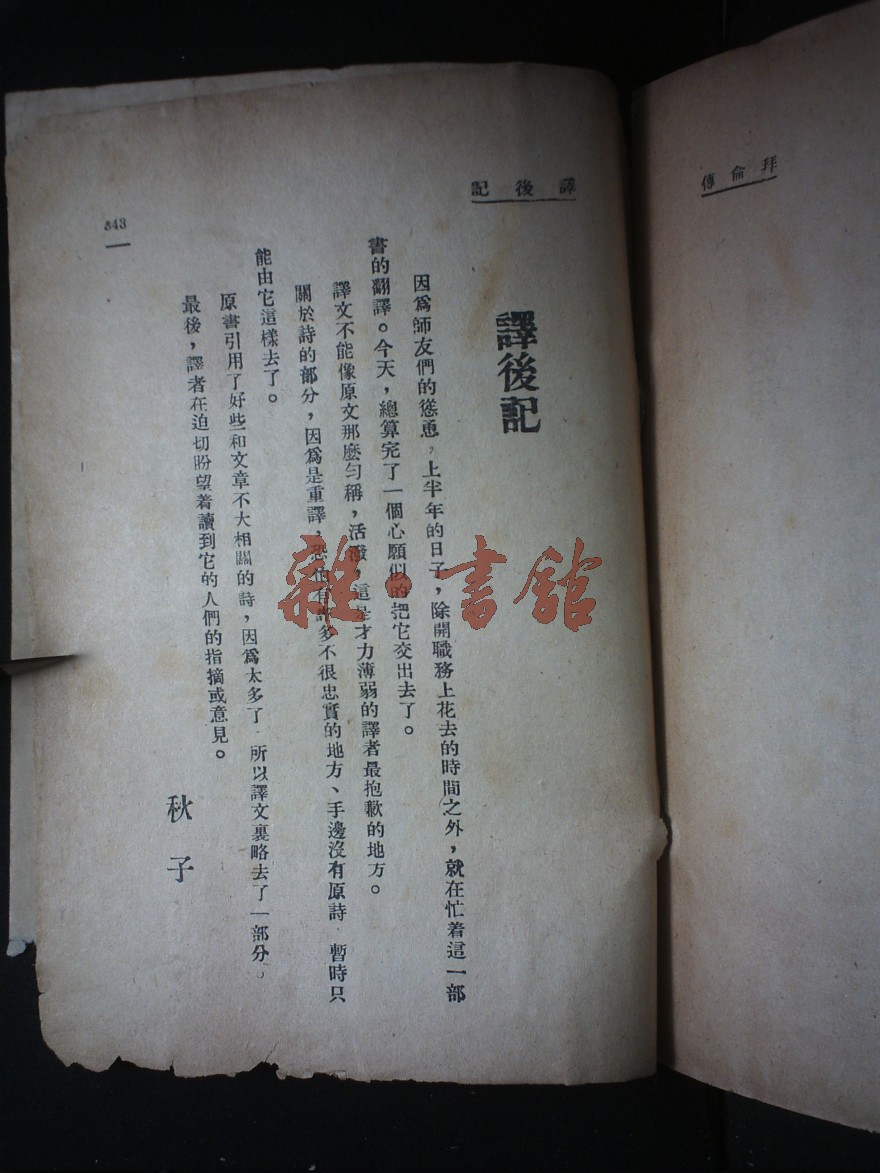 拜倫傳
譯後記
譯後記
因爲師友們的慫恿，上半年的日子，除開職務上花去的時間之外，就在忙着這一部
書的翻譯。今天，總算完了一個心願似的把它交出去了。
譯文不能像原文那麼勻稱，活潑，這是才力薄弱的譯者最抱歉的地方。
關於詩的部分，因爲是重譯，恐怕有許多不很忠實的地方、手邊沒有原詩，暫時只
能由它這樣去了。
原書引用了好些和文章不大相關的詩，因爲太多了，所以譯文裏略去了一部分。
最後，譯者在迫切盼望着讀到它的人們的指摘或意見。
秋子
343
雜·書館